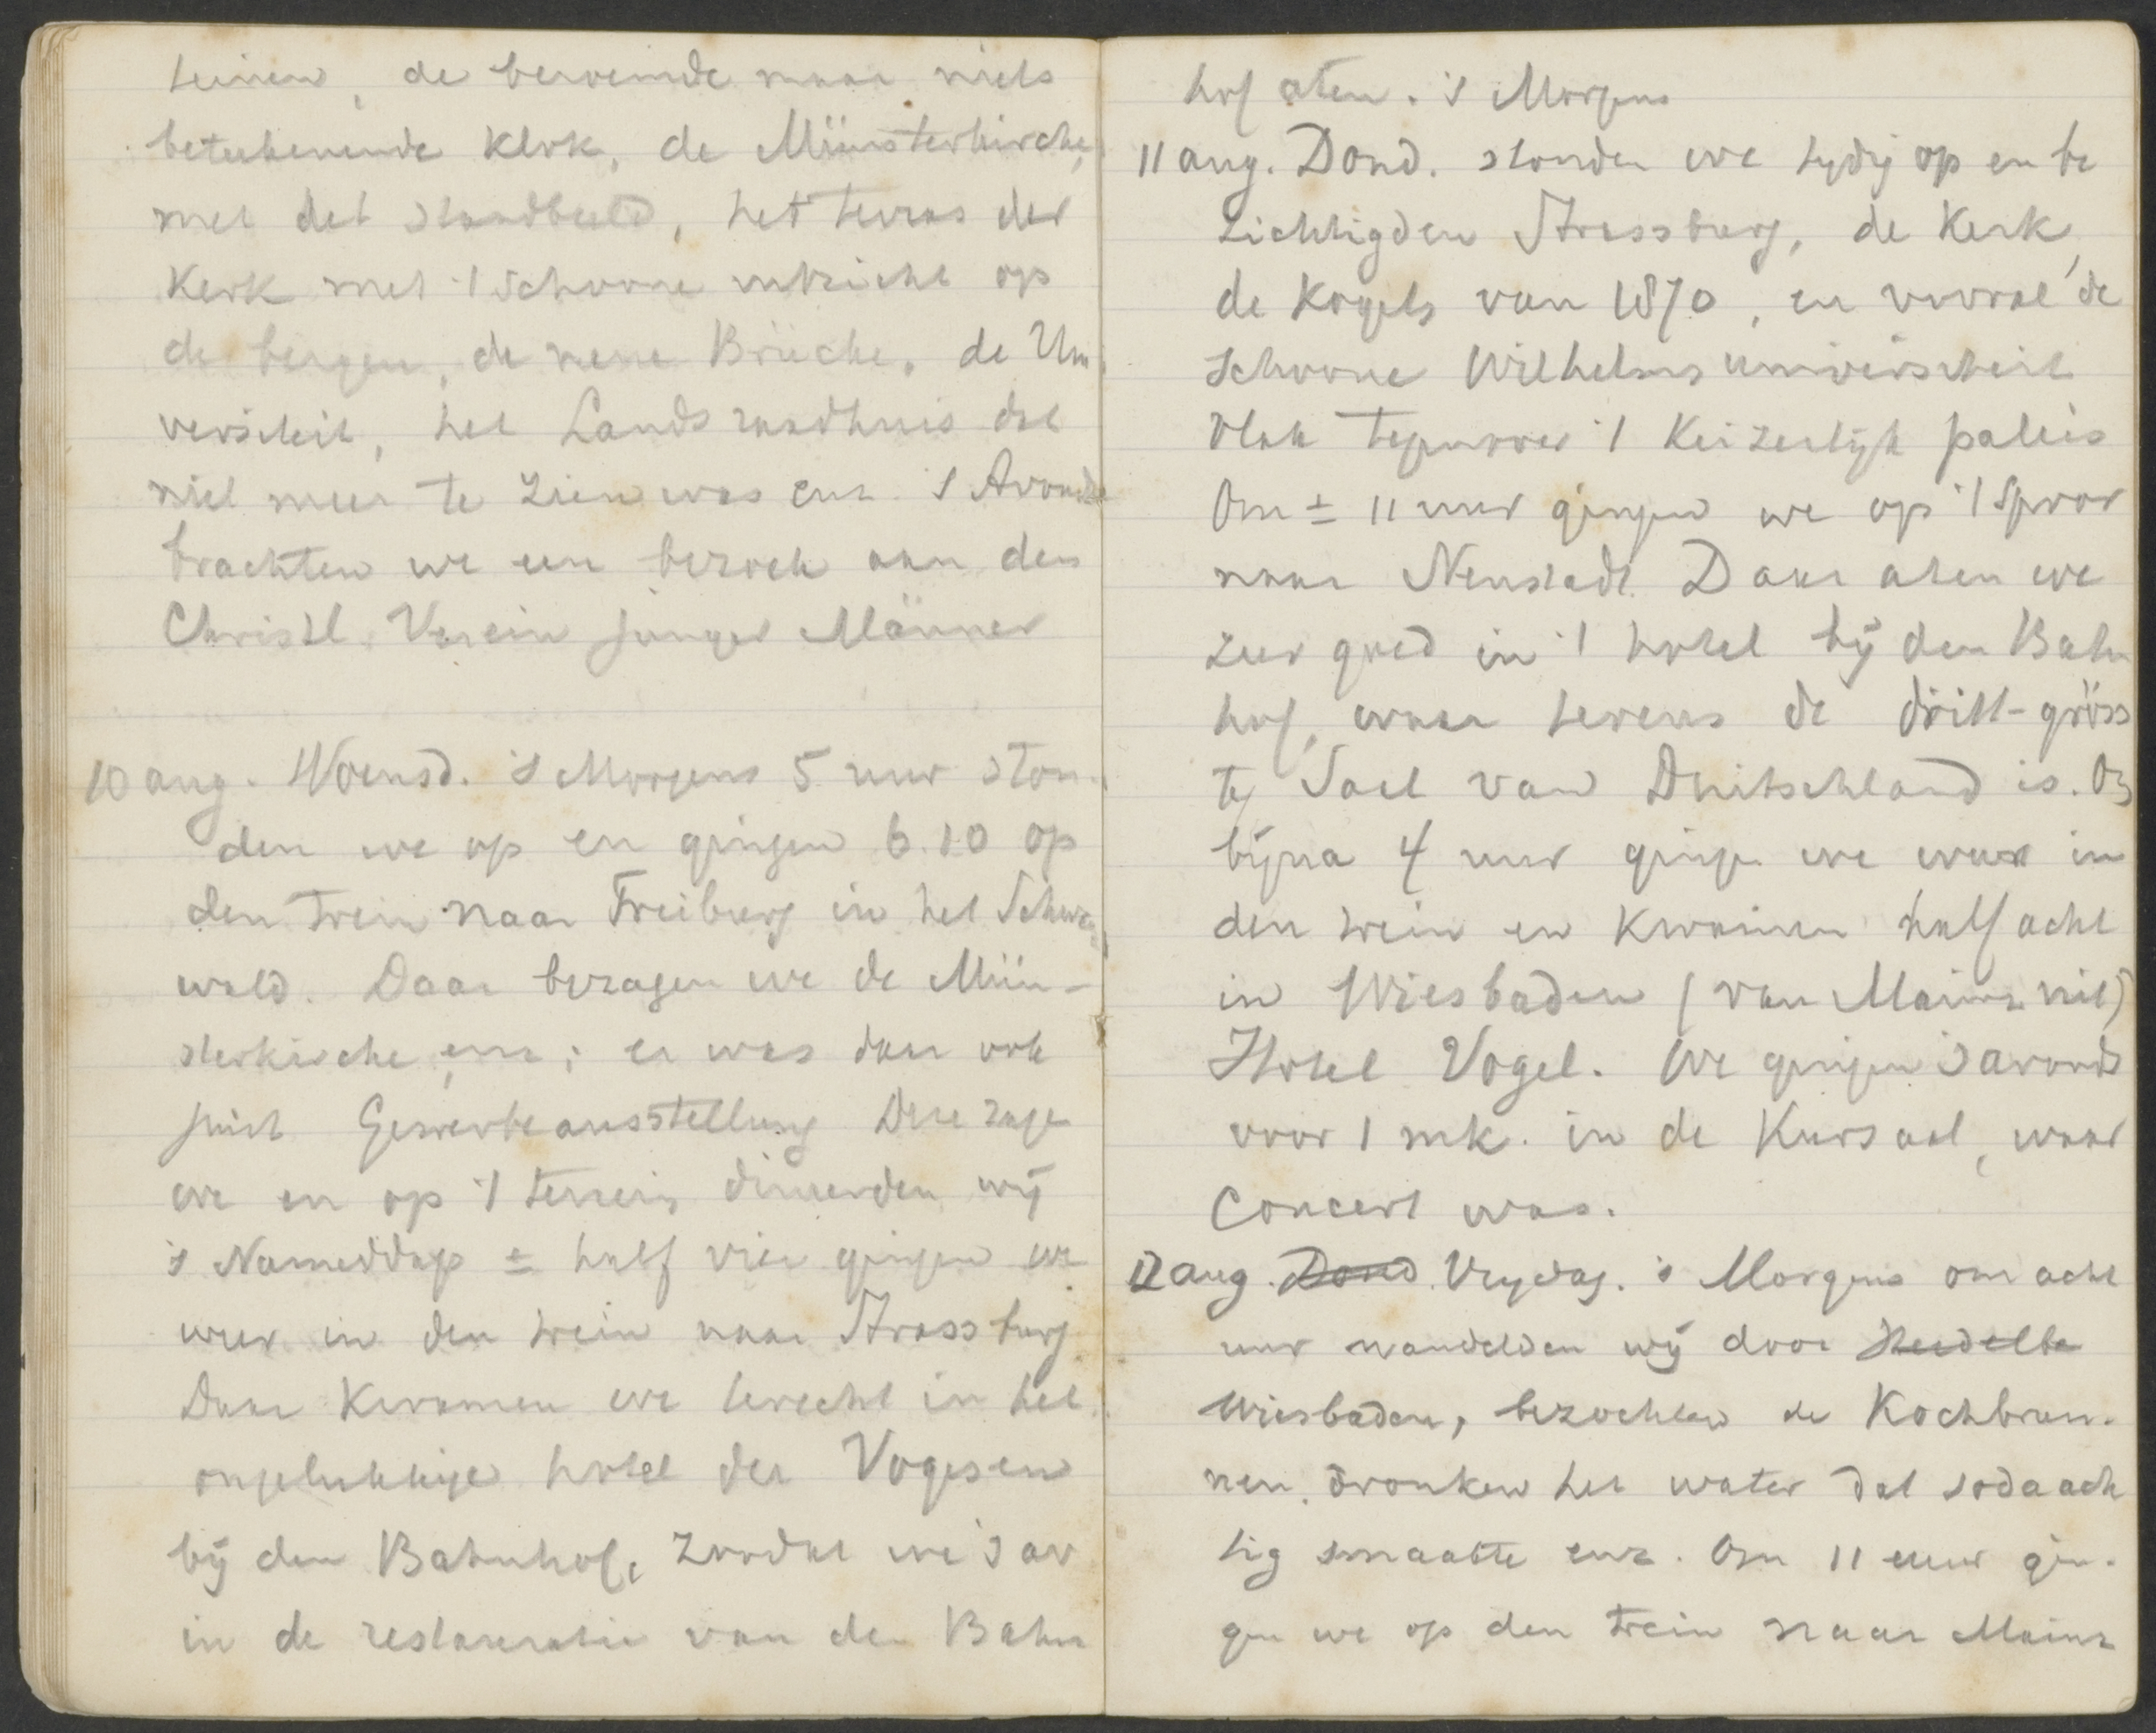 teinen, de beroemde maar niets
beteekenende Kerk, de Münsterkirche,
met det standbeeld, het terras der
Kerk met 't schoone uitzicht op
de bergen, de neue Brücke, de Uni
versiteit, het Landsraadhuis dat
niet meer te zien was enz. 's Avonds
brachten we een bezoek aan den
Christl. Verein junger Männer
10 aug. Woensd. 's Morgens 5 uur ston-
den we op en gingen 6.10 op
den trein naar Freiburg in het Schwarz
wald. Daar bezagen we de Mün-
sterkirche enz; er was daar ook
juist Gewerbeausstellung Deze zagen
we en op 't terrein dineerden wij
's Nameddags ± half vier gingen we
weer in den trein naar Strassburg
Daar kwamen we terecht in het
ongelukkige hotel der Vogesen
bij den Bahnhof, zoodat we 's av
in de restauratie van den Bahn
hof aten. 's Morgens
11 aug. Dond. stonden we tydig op en be
zichtigden Strassburg, de Kerk,
de Kogels van 1870, en vooral de
schoone Wilhelms universiteit
vlak tegenover 't Keizerlijk paleis
Om ± 11 uur gingen we op 't spoor
naar Neustadt. Daar aten we
zeer goed in 't hotel bij den Bahn
hof, waar tevens de dritt-gröss
te Saal van Duitschland is. Om
bijna 4 uur gingen we weer in
den trein en kwamen half acht
in Wiesbaden (van Mainz uit)
Hotel Vogel. We gingen 's avonds
voor 1 mk. in de Kursaal, waar
Concert was.
12 aug. Dond. Vrydag. 's Morgens om acht
uur wandelden wij door Heidelbe
Wiesbaden, bezochten de Kochbrun-
nen, dronken het water dat sodaach
tig smaakte enz. Om 11 uur gin-
gen we op den trein naar Mainz